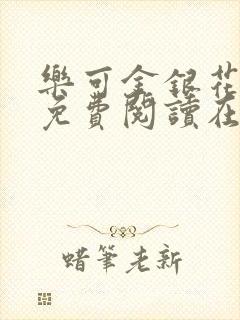 樂可金銀花
免費閱讀在
蜡筆老新